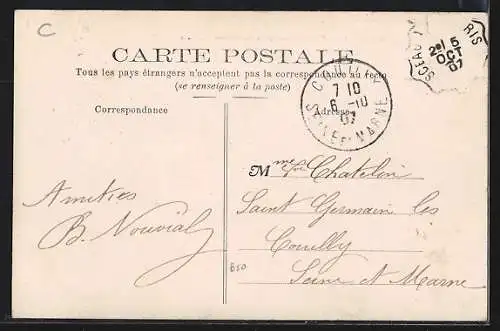 C
CARTE POSTALE
Tous les pays étrangers n'acceptent pas la correspondance au recto
(se renseigner à la poste)
Correspondance
Adresse
COUILLY
7 10
6 -10
07
SEINE ET MARNE
SCEAUX PARIS
2e 15
OCT
07
Mme Vve Chatelin
Saint Germain les
Couilly
Seine et Marne
Amitiés
B. Nouvial
B50